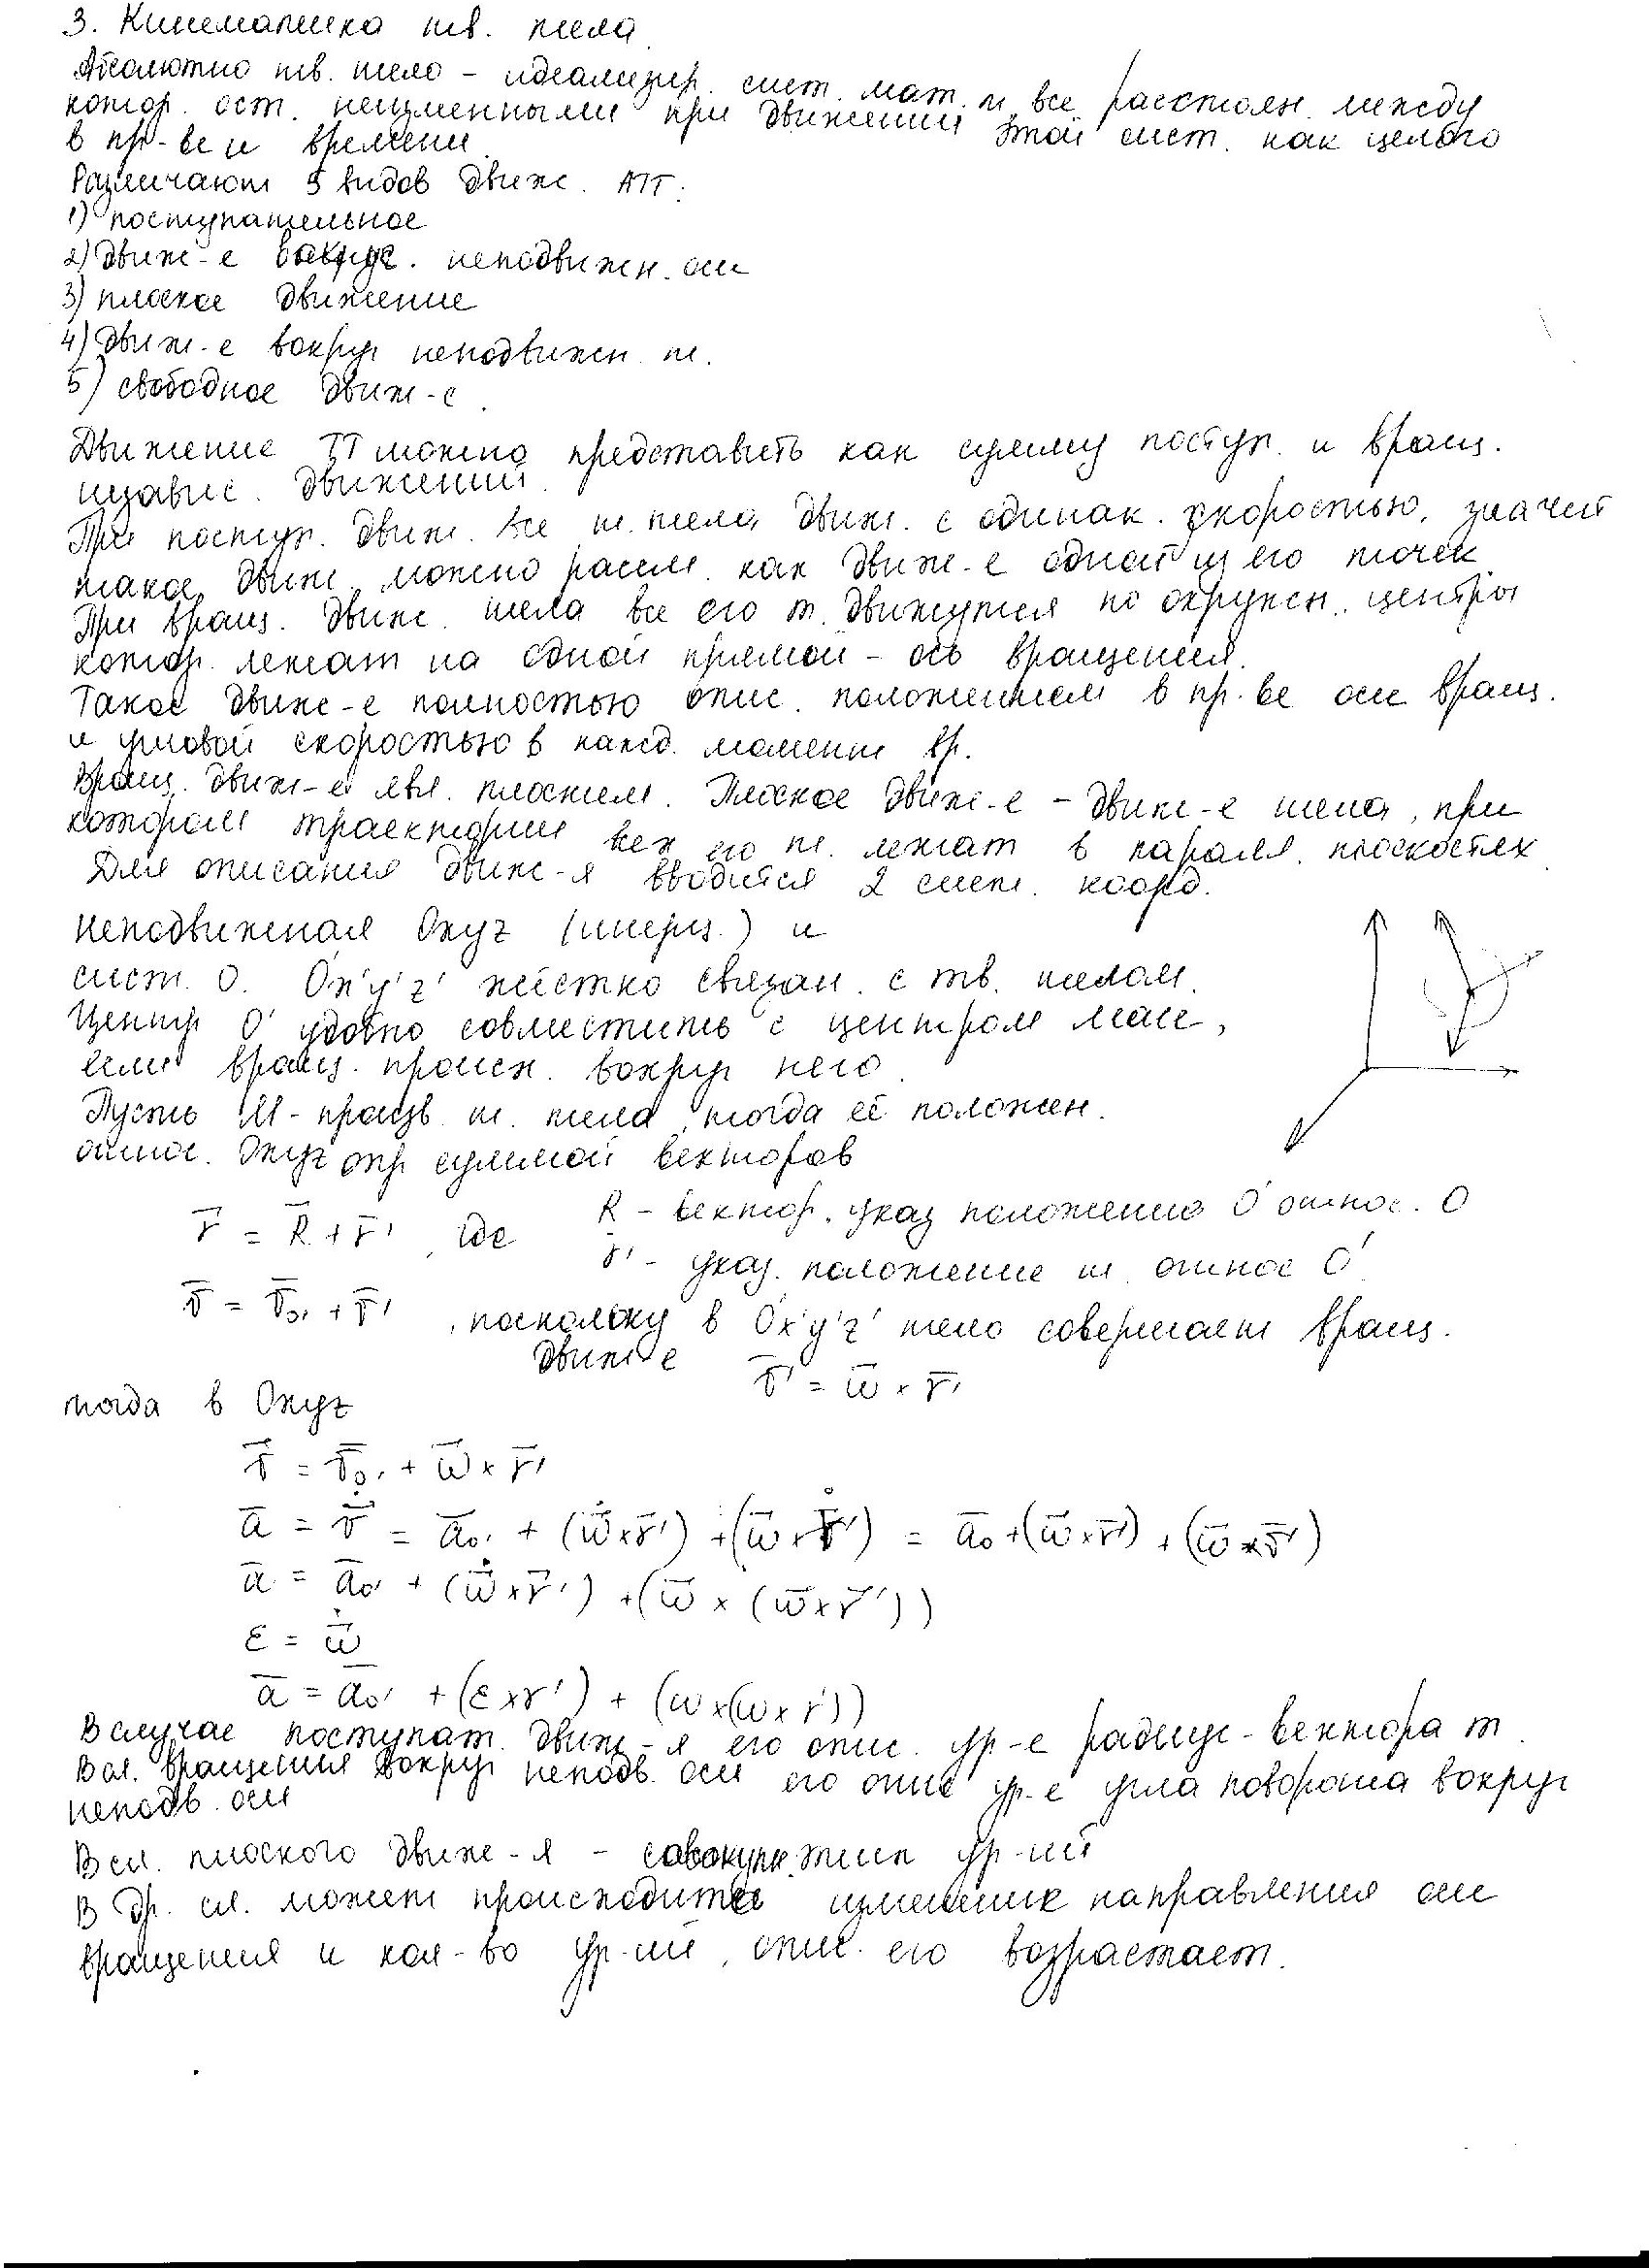 3. Кинематика тв. тела
Абсолютно тв. тело – идеализир. сист. мат. т, все расстоян. между
котор. ост. неизменными при движении этой сист. как целого
в пр-ве и времени
Различают 5 видов движ. АТТ:
1) поступательное
2) движ-е вокруг. неподвижн. оси
3) плоское движение
4) движ-е вокруг неподвижн. т.
5) свободное движ-е.
Движение ТТ можно представить как сумму поступ. и вращ.
независ. движений.
При поступ. движ. все т. тела движ. с одинак. скоростью, значит
такое движ. можно рассм. как движ-е одной из его точек
При вращ. движ. тела все его т. движутся по окружн. центры
котор. лежат на одной прямой – ось вращения.
Такое движ-е полностью опис. положением в пр-ве оси вращ.
и угловой скоростью в кажд. момент вр.
Вращ. движ-е явл. плоским. Плоское движ-е – движ-е тела, при
котором траектории всех его т. лежат в паралл. плоскостях
Для описания движ-я вводится 2 сист. коорд.
неподвижная Oxyz (инерц.) и
сист. О. O'x'y'z' жёстко связан. с тв. телом.
Центр O' удобно совместить с центром масс,
если вращ. происх. вокруг него.
Пусть М - произв. т. тела, тогда её положен.
относ. Oxyz опр суммой векторов
r̄ = R̄ + r̄', где R – вектор, указ положение O' относ. O
r̄' – указ. положение т. относ O'
v̄ = v̄o' + v̄', поскольку в O'x'y'z' тело совершает вращ.
движ-е v̄' = ω̄ × r̄'
тогда в Oxyz
v̄ = v̄o' + ω̄ × r̄'
ā = v̄̇ = āo' + (ω̄̇ × r̄') + (ω̄ × r̄̇') = āo + (ω̄ × r̄') + (ω̄ × v̄')
ā = āo' + (ω̄̇ × r̄') + (ω̄ × (ω̄ × r̄'))
ε = ω̄̇
ā = āo' + (ε × r') + (ω × (ω × r'))
В случае поступат. движ-я его опис. ур-е радиус-вектора т.
В сл. вращения вокруг неподв. оси его опис ур-е угла поворота вокруг
неподв. оси
В сл. плоского движ-я – совокупн. этих ур-ий
В др. сл. может происходить изменение направления оси
вращения и кол-во ур-ий, опис. его возрастает.